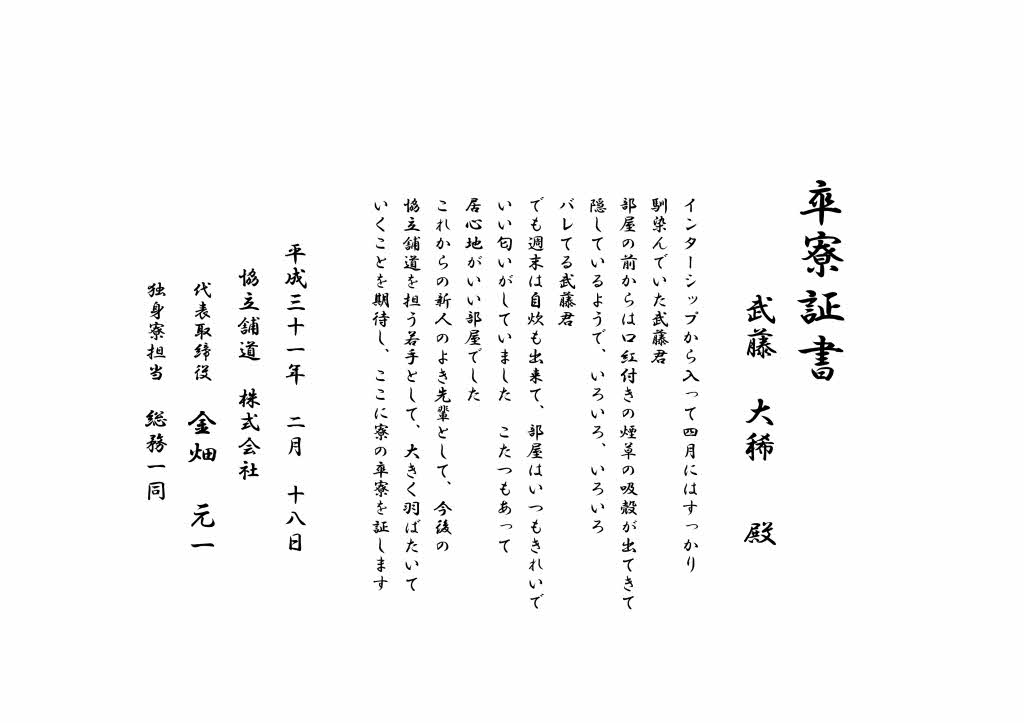 卒寮証書
武藤　大稀　殿
インターシップから入って四月にはすっかり
馴染んでいた武藤君
部屋の前からは口紅付きの煙草の吸殻が出てきて
隠しているようで、いろいろ、いろいろ
バレてる武藤君
でも週末は自炊も出来て、部屋はいつもきれいで
いい匂いがしていました　こたつもあって
居心地がいい部屋でした
これからの新人のよき先輩として、今後の
協立舗道を担う若手として、大きく羽ばたいて
いくことを期待し、ここに寮の卒寮を証します
平成三十一年　二月　十八日
協立舗道　株式会社
代表取締役　金畑　元一
独身寮担当　総務一同